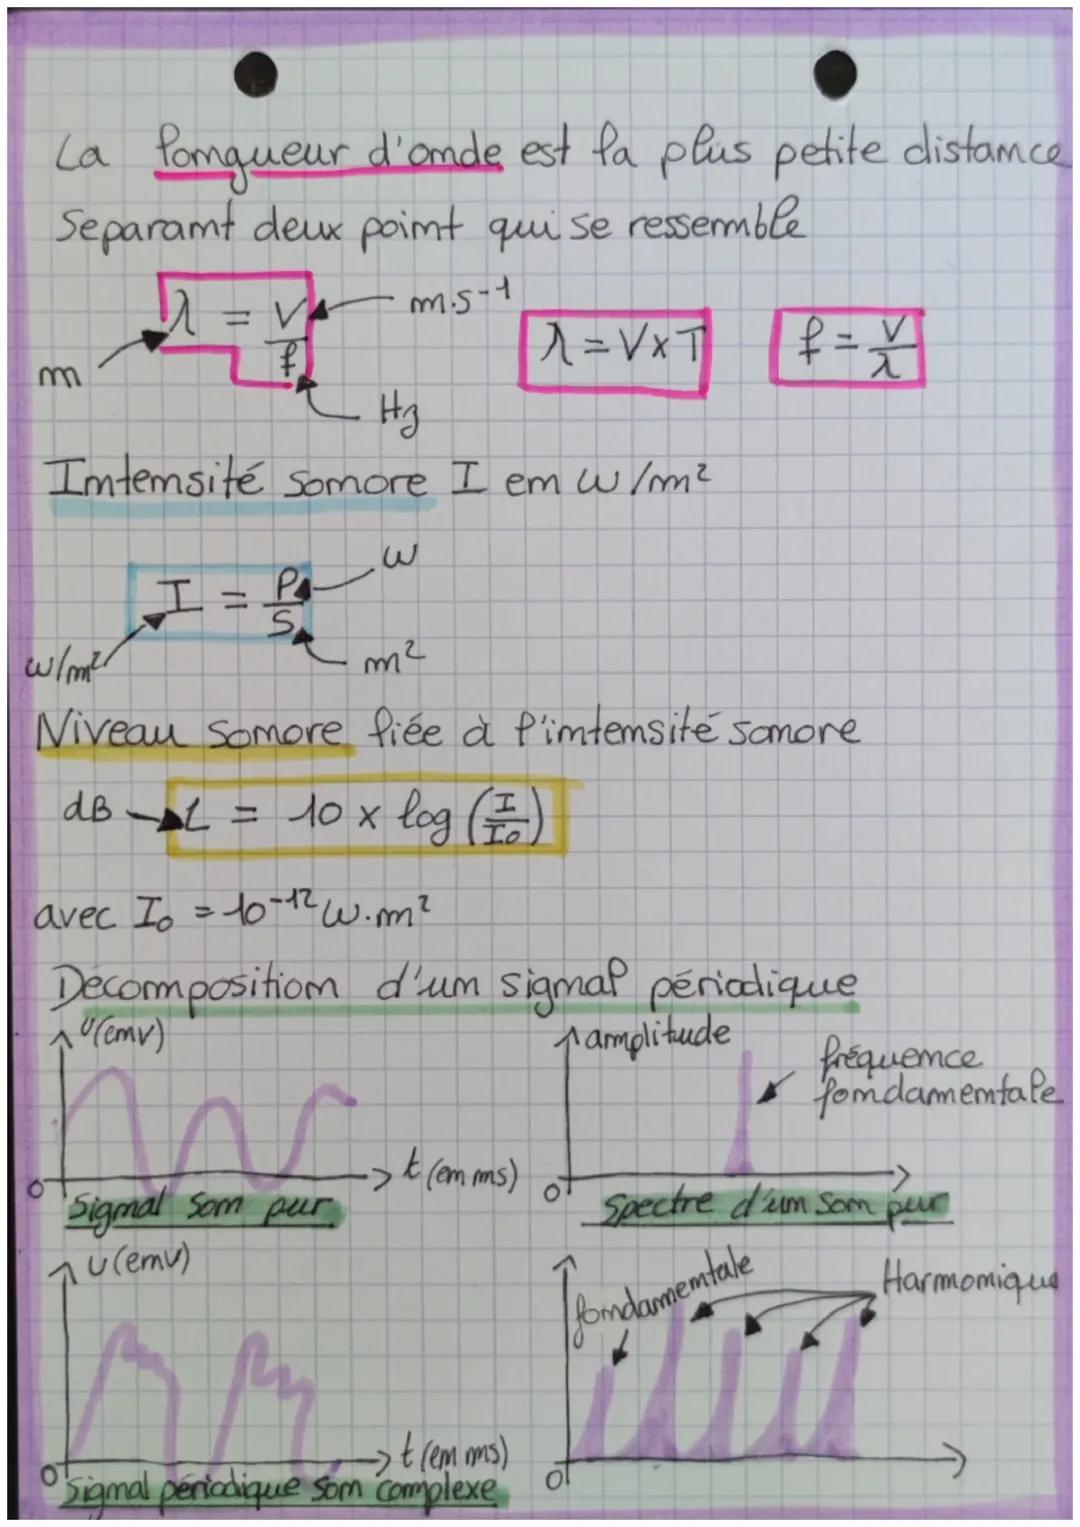 La longueur d'onde est la plus petite distance
Separant deux point qui se ressemble
λ = V/f
m.s-1
m
Hz
λ = V x T
f = V/λ
Intensité sonore I en W/m²
I = P/S
W
W/m²
m²
Niveau sonore liée à l'intensité sonore
dB L = 10 x log (I/I₀)
avec I₀ = 10⁻¹² W.m²
Décomposition d'un signal périodique
U(env)
amplitude
fréquence
fondamentale
t (en ms)
0
0
Signal Son pur
Spectre d'un Son pur
U(env)
fondamentale
Harmonique
t (en ms)
0
0
Signal périodique Son complexe